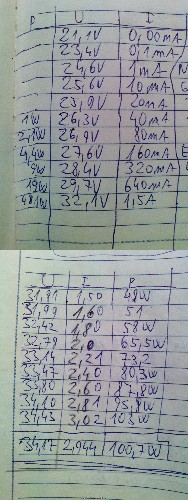 U I
21,1V 0,00mA
23,4V 0,1mA
24,6V 1mA
25,6V 10mA
25,9V 20mA
1W 26,3V 40mA
26,9V 80mA
4,4W 27,6V 160mA
9W 28,4V 320mA
19W 29,7V 640mA
48,1W 32,1V 1,5A
U I P
31,91 1,50 48W
31,99 1,60 51
32,42 1,80 58W
32,79 2,0 65,5W
33,14 2,21 73,2
33,47 2,40 80,3W
33,80 2,60 87,8W
34,10 2,81 95,8W
34,43 3,02 103W
34,87 2,944 100,70W